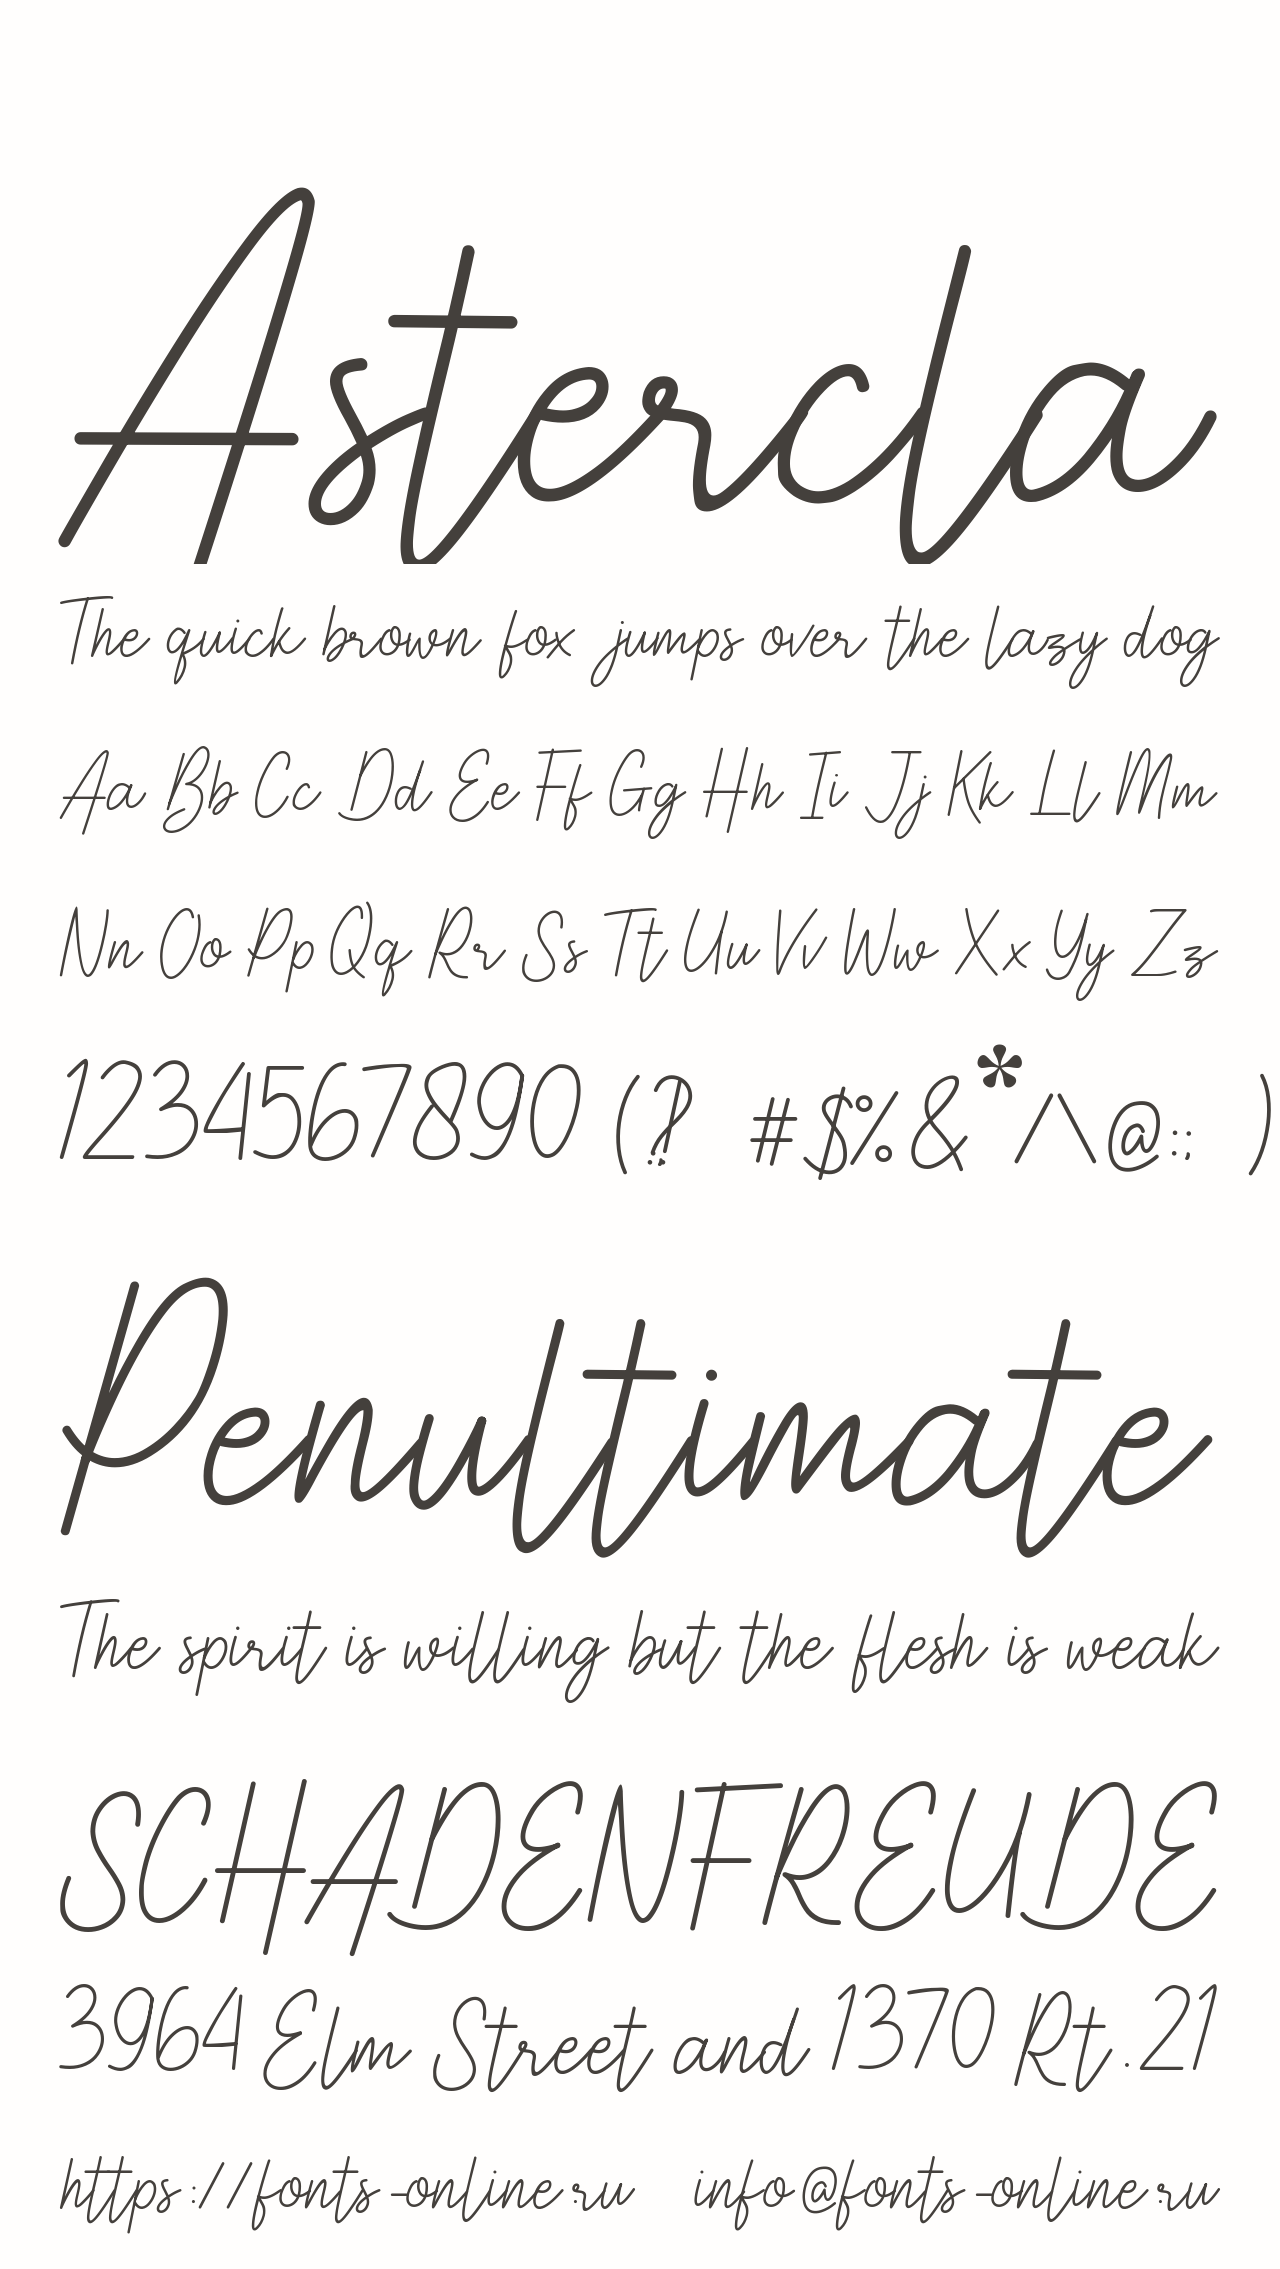 Astercla
The quick brown fox jumps over the lazy dog
Aa Bb Cc Dd Ee Ff Gg Hh Ii Jj Kk Ll Mm
Nn Oo Pp Qq Rr Ss Tt Uu Vv Ww Xx Yy Zz
1234567890 (? #$%&*/\@:; )
Penultimate
The spirit is willing but the flesh is weak
SCHADENFREUDE
3964 Elm Street and 1370 Rt.21
https://fonts-online.ru info@fonts-online.ru